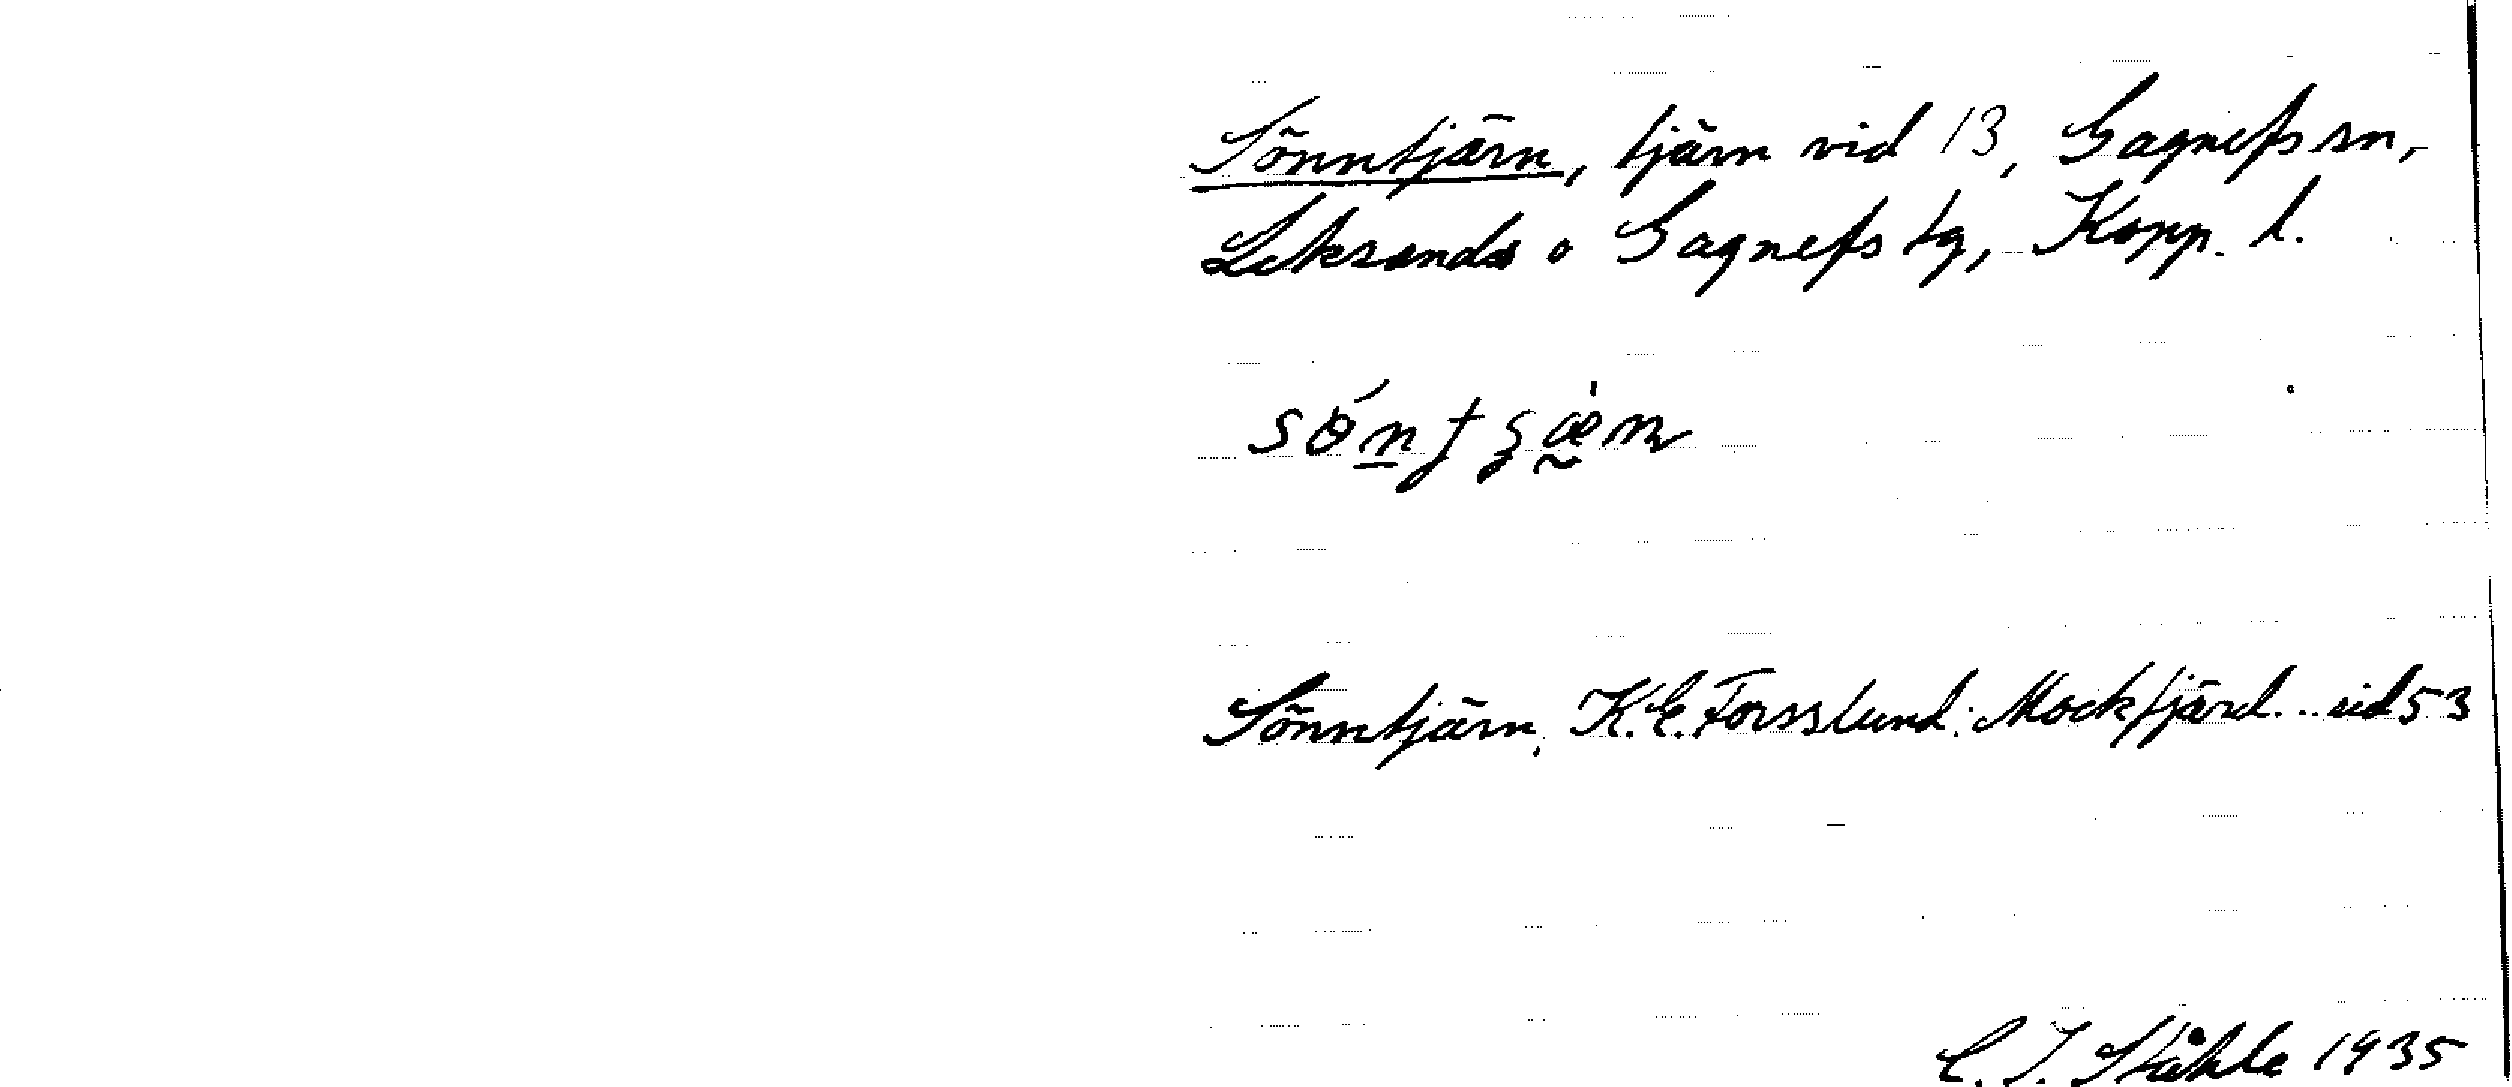 Sönntjärn, tjärn vid 13, Gagnefs sn,
Leksands o Gagnefs tg, Kopp. l.
Sönntjärn, K.E. Forsslund: Mockfjärd... sid 53
C. I. Ståhle 1935